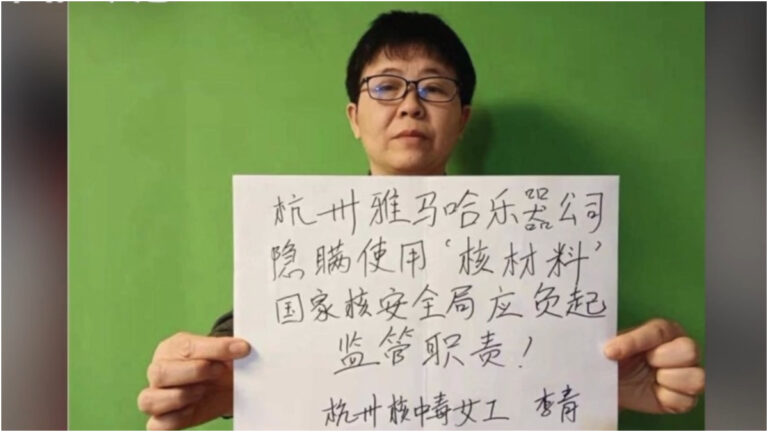 杭州雅马哈乐器公司
隐瞒使用‘核材料’
国家核安全局应负起
监管职责!
杭州核中毒女工 李青